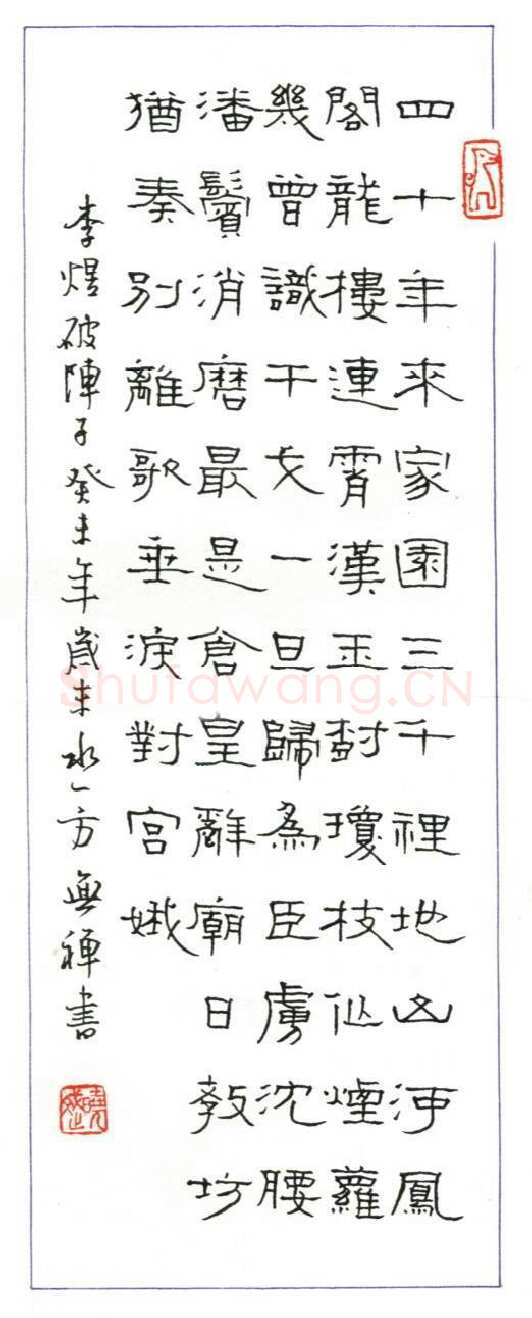 四十年來家園三千裡地山河鳳
閣龍樓連霄漢玉樹瓊枝作煙蘿
幾曾識干戈一旦歸為臣虜沈腰
潘鬢消磨最是倉皇辭廟日教坊
猶奏別離歌垂淚對宮娥
李煜破陣子癸未年歲末水一方無禪書
Shufawang.CN